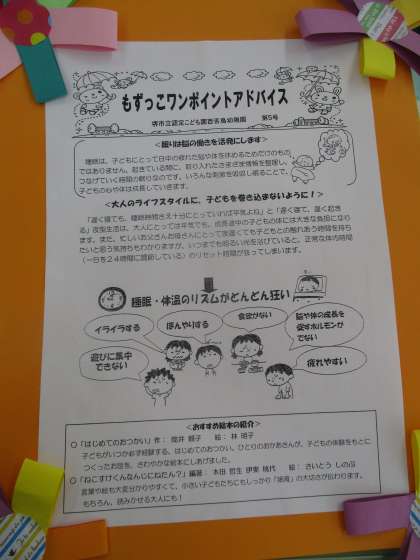 もずっこワンポイントアドバイス
堺市立認定こども園百舌鳥幼稚園　第5号
<眠りは脳の働きを活発にします>
睡眠は、子どもにとって日中の疲れた脳や体を休めるためだけのもの
ではありません。起きている間に、取り入れたさまざま情報を整理し、
つなげていく時間の静りなのです。いろんな刺激を吸収し眠ることで、
子どもの心や体は成長していきます。
<大人のライフスタイルに、子どもを巻き込まないように！>
「遅く寝ても、睡眠時間さえ十分にとっていれば平気よね」と「遅く寝て、遅く起き
る」夜型生活は、大人にとっては平気でも、成長途中の子どもの体には大きな負担になり
ます。また、忙しいお父さんお母さんにとって夜遅くても子どもとの触れあう時間を持ち
たいと思う気持ちもわかりますが、いつまでも明るい光を浴びていると、正常な体内時計
（一日を２４時間に調節している）のリセット時間が狂ってしまいます。
睡眠・体温のリズムがどんどん狂い
イライラする
ぼんやりする
食欲がない
脳や体の成長を
促すホルモンが
でない
遊びに集中
できない
疲れやすい
<おすすめ絵本の紹介>
○「はじめてのおつかい」作：筒井 頼子　絵：林 明子
子どもがいつか必ず経験する、はじめてのおつかい。ひとりのおかあさんが、子どもの体験をもとに
つくったお話を、さわやかな絵本にしあげました。
○「ねこすけくんなんじにねたん？」編著：本田 哲生 伊東 桃代　絵：さいとう しのぶ
言葉や絵も大変分かりやすくて、小さい子どもたちにもしっかり「睡育」の大切さが伝わります。
もちろん、読みきかせる大人にも！